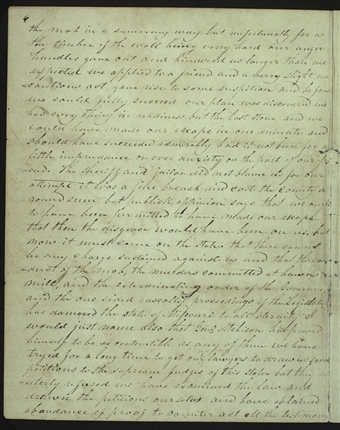 the mob in a sumerary way, but unfortunately for us
the timber of the wall being very hard our auger
handles gave out and hindered us longer than we
expected we applied to a friend and a very slight un
cautious act gave rise to some suspition and before
we could fully succeed our plan was discovered we
had every thing in readiness but the last stone and we
could have made our escape in one minute and
should have succeeded admirably had it not been for a
little imprudance or over anxiety on the part of our fri
end. The sheriff and jailor did not blame us for our
attempt it was a fine breach and cost the county a
round sum but publick oppinion says that we ought
to have been permitted to have made our escape
that then the disgrace would have been on us, but
now it must come on the state. that there cannot
be any charge sustained against us and that the con
duct of the mob, the murders committed at hawns
mill, and the exterminating order of the Governor
and the one sided rascally proceedings of the Legislature
has damned the state of Missouri to all eternity I
would just name also that Genl Atchison has proved
himself to be as contemtible as any of them we have
tryed for a long time to get our lawyers to draw us some
petitions to the supream Judges of this state. but they
utterly refused we have examined the law and
drawn the petitions ourselves and have obtained
abundance of proof to counter act all the testimony